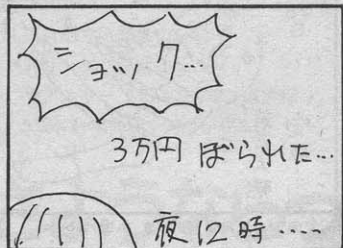 ショック…
3万円 ぼられた…
夜12時……